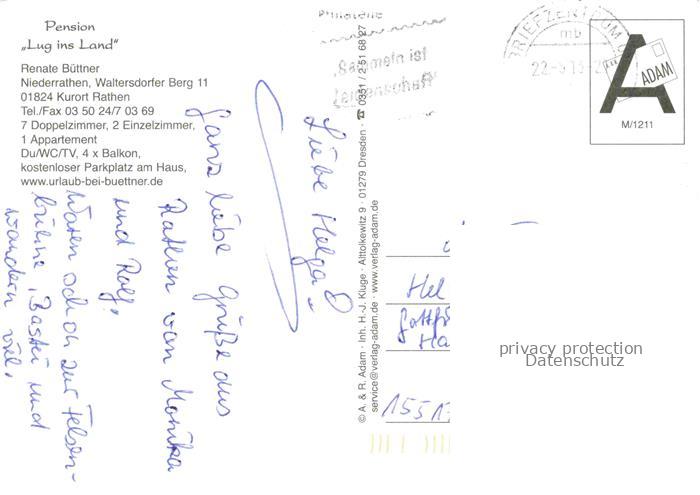 Pension
„Lug ins Land"
Renate Büttner
Niederrathen, Waltersdorfer Berg 11
01824 Kurort Rathen
Tel./Fax 03 50 24/7 03 69
7 Doppelzimmer, 2 Einzelzimmer,
1 Appartement
Du/WC/TV, 4 x Balkon,
kostenloser Parkplatz am Haus,
www.urlaub-bei-buettner.de
Liebe Helga!
Ganz liebe Grüße aus
Rathen von Monika
und Rolf.
Waren schon zur Felsen-
bühne, Bastei und
wandern viel.
© A. & R. Adam · Inh. H.-J. Kluge · Alttolkewitz 9 · 01279 Dresden · ☎ 0351 / 2 51 68 27
service@verlag-adam.de · www.verlag-adam.de
Philatelie
Sammeln ist
BRIEFZENTRUM
mb
ADAM
M/1211
Hel
Ha
privacy protection
Datenschutz